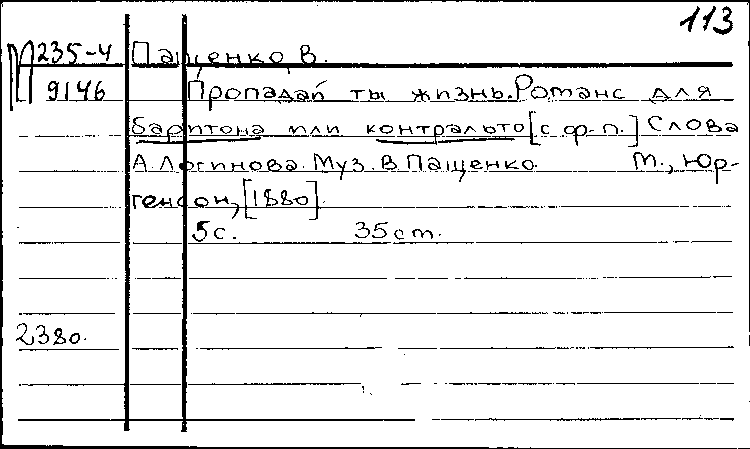 113
П235-4 Пащенко, В.
9146 Пропадай ты жизнь. Романс для
баритона или контральто [с ф-п.] Слова
А. Логинова. Муз. В. Пащенко. М., Юр-
генсон, [1880].
5с. 35 ст.
2380.